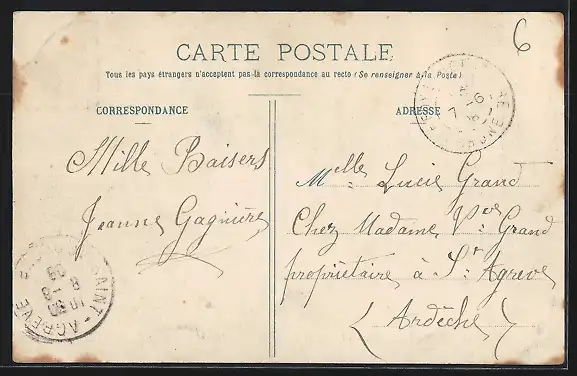 CARTE POSTALE
Tous les pays étrangers n'acceptent pas la correspondance au recto (Se renseigner à la Poste)
CORRESPONDANCE
ADRESSE
6
Mille Baisers
Jeanne Gagnière
Melle Lucie Grand
Chez Madame Vve Grand
propriétaire à St Agrève
(Ardèche)
SAINT-AGRÈVE